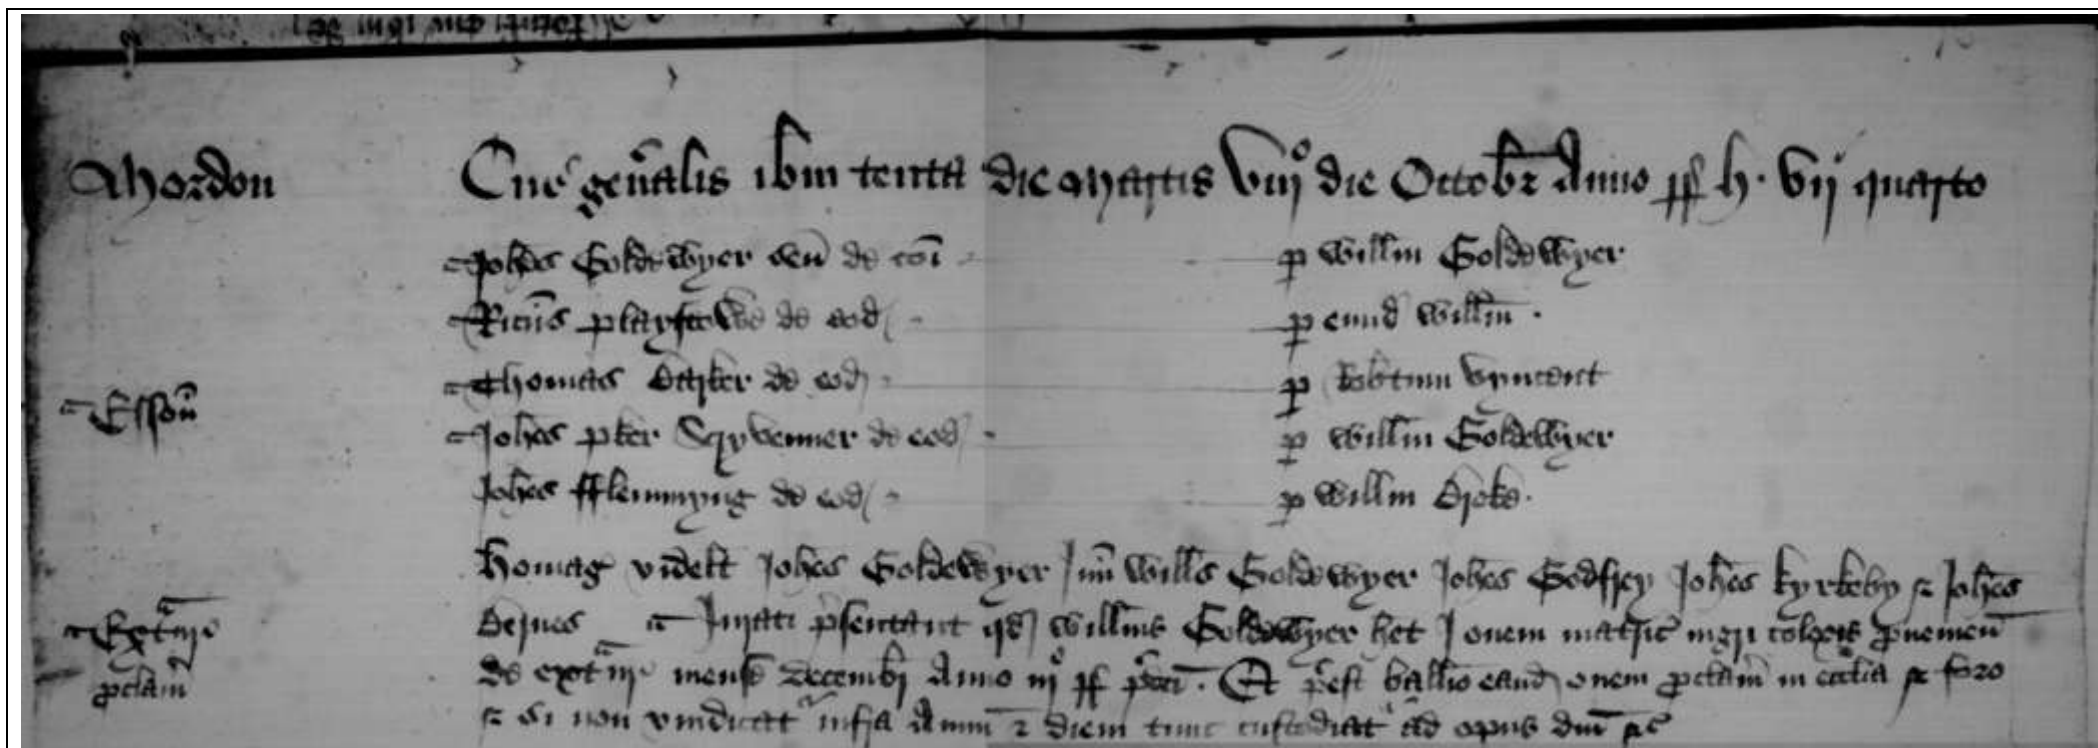 Mordon Cur genalis ibm tenta die Martis viijº die Octobr Anno rr h. vij quarto
Johes Goldewyer sen de coi p willm Goldewyer
Ricus playstowe de eod p eund willm.
Thomas Barker de eod p Robtum vyncent
Esson
Johes pker Scryvenner de eod p willm Goldewyer
Johes fflemmyng de eod p willm Broke.
homag videlt Johes Goldewyer Jun wills Goldewyer Johes Godfrey Johes kyrkeby & Johes
Extur Bernes Jurati psentant qd willms Goldewyer het j ovem matric nigri coloris pvenien
de extur mens Decembr Anno iijº rr pdci. Et pc est ballio eand ovem pclam in ecclia & foro
pclam
& si non vindicat infra Annu & diem tunc custodiat ad opus dni &c